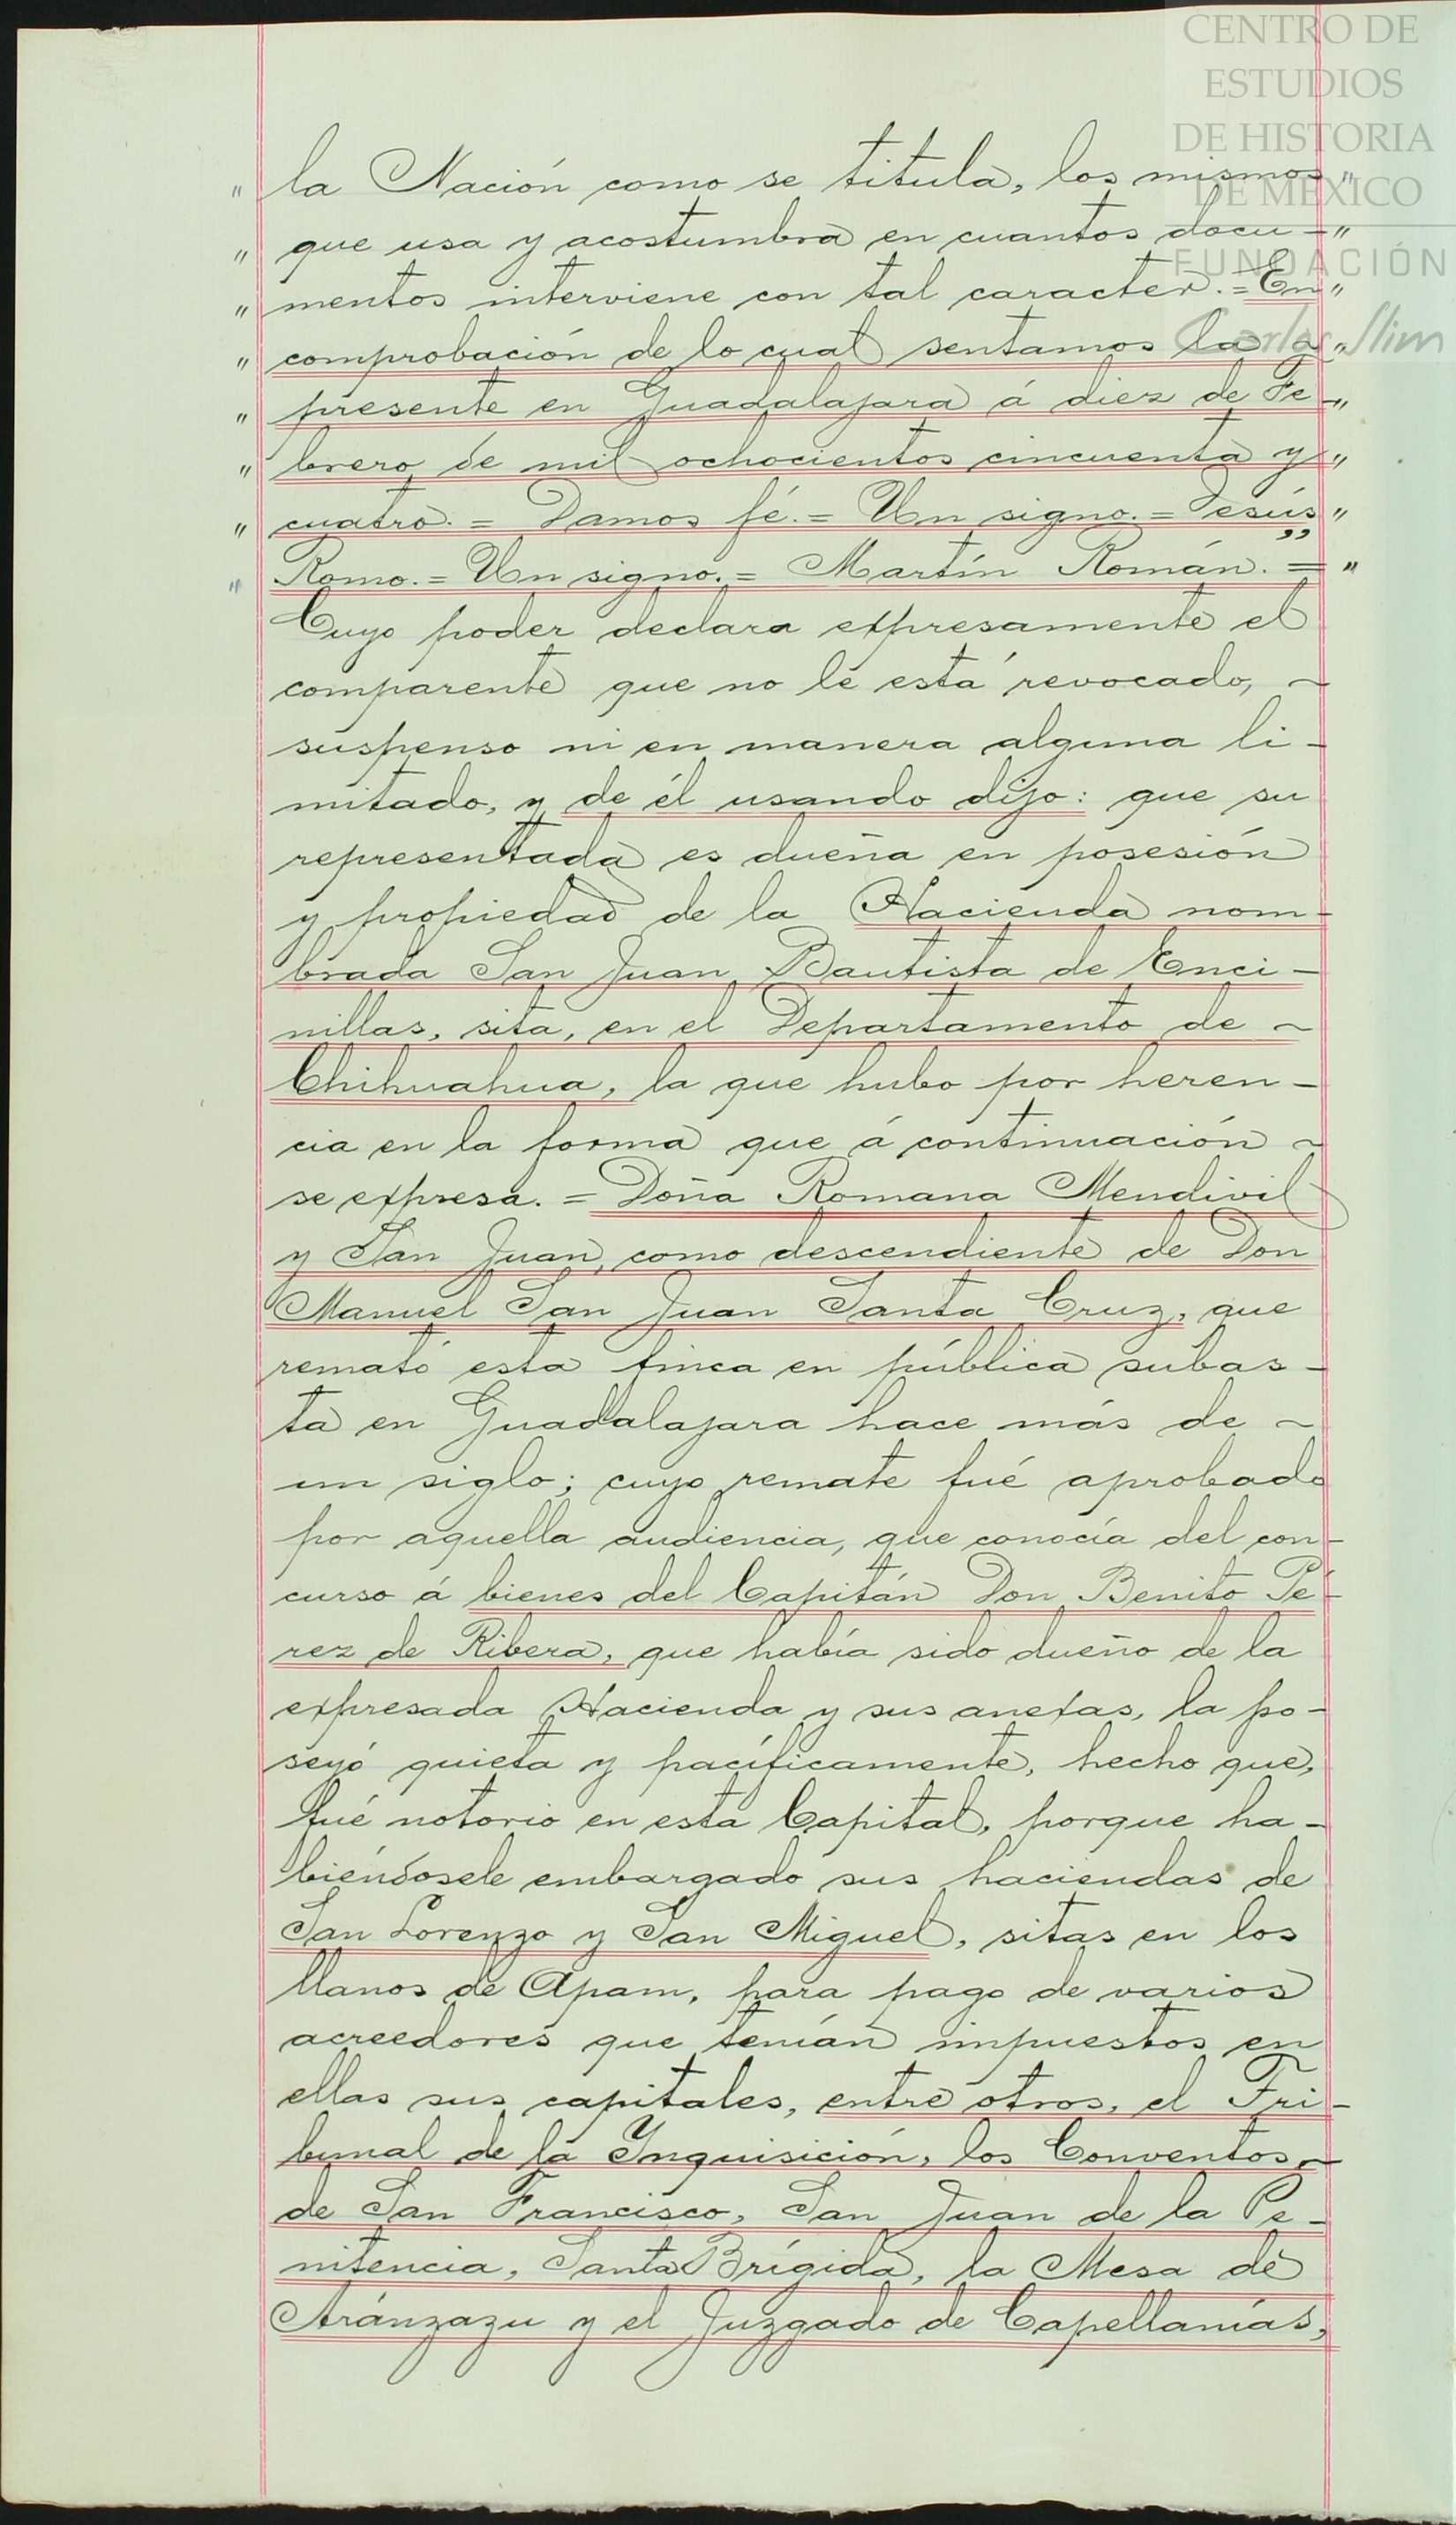 CENTRO DE
ESTUDIOS
DE HISTORIA
DE MÉXICO
FUNDACIÓN
Carlos Slim
" la Nación como se titula, los mismos "
" que usa y acostumbra en cuantos docu- "
" mentos interviene con tal caracter. = En "
" comprobación de lo cual sentamos la "
" presente en Guadalajara á diez de Fe- "
" brero de mil ochocientos cincuenta y "
" cuatro. = Damos fé. = Un signo. = Jesús "
" Romo. = Un signo. = Martín Román. = "
Cuyo poder declara expresamente el
comparente que no le está revocado, ~
suspenso ni en manera alguna li-
mitado, y de él usando dijo: que su
representada es dueña en posesión
y propiedad de la Hacienda nom-
brada San Juan Bautista de Enci-
nillas, sita, en el Departamento de ~
Chihuahua, la que hubo por heren-
cia en la forma que á continuación ~
se expresa. = Doña Romana Mendivil
y San Juan, como descendiente de Don
Manuel San Juan Santa Cruz, que
remató esta finca en pública subas-
ta en Guadalajara hace más de ~
un siglo; cuyo remate fué aprobado
por aquella audiencia, que conocía del con-
curso á bienes del Capitán Don Benito Pé-
rez de Ribera, que había sido dueño de la
expresada Hacienda y sus anexas, la po-
seyó quieta y pacíficamente, hecho que,
fué notorio en esta Capital, porque ha-
biéndosele embargado sus haciendas de
San Lorenzo y San Miguel, sitas en los
llanos de Apam, para pago de varios
acreedores que tenían impuestos en
ellas sus capitales, entre otros, el Tri-
bunal de la Ynquisición, los Conventos ~
de San Francisco, San Juan de la Pe-
nitencia, Santa Brígida, la Mesa de
Aránzazu y el Juzgado de Capellanías,